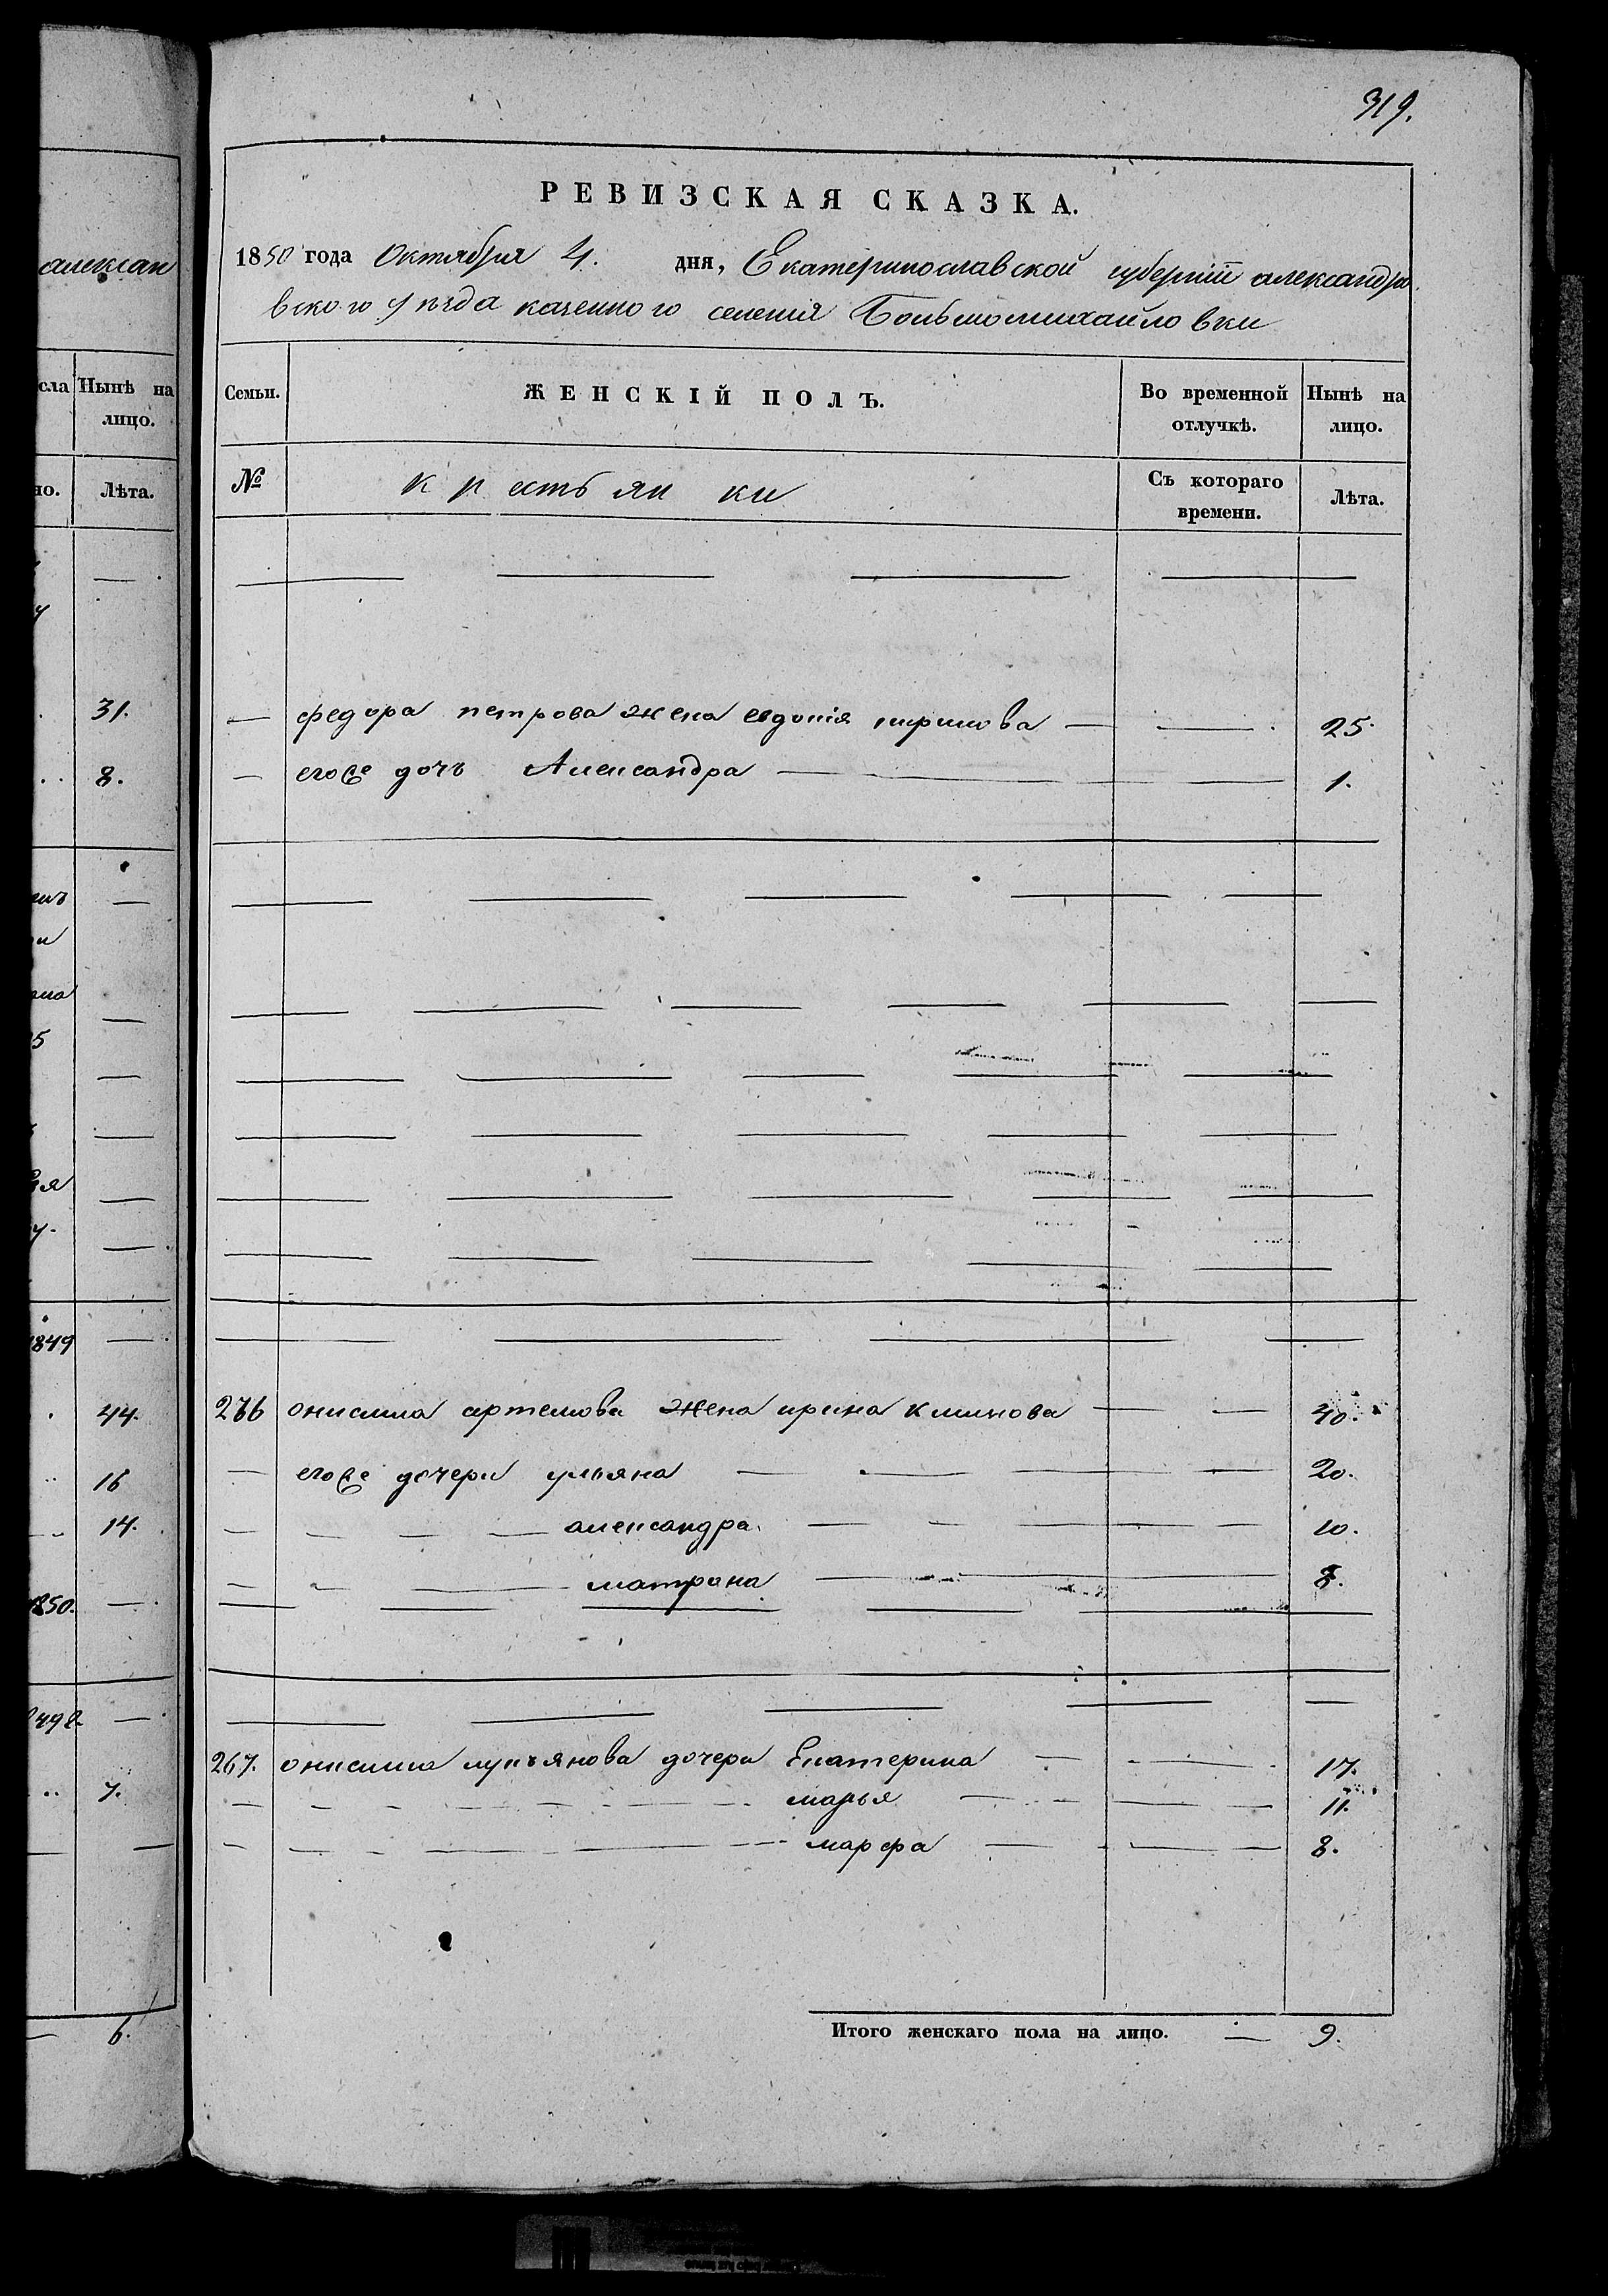 319.
РЕВИЗСКАЯ СКАЗКА.
1850 года Октября 4. дня, Екатеринославской губернии александро
вского уѣзда казенного селения Большомихайловки
Семьи. ЖЕНСКІЙ ПОЛЪ. Во временной отлучкѣ. Нынѣ на лицо.
№ крестьянки Съ котораго времени. Лѣта.
— федора петрова жена евдокія — — 25.
— егоже дочь Александра — — 1.
266 онисима артемова жена ирина климова — — 40.
— егоже дочери ульяна — — 20.
— — — александра — — 10.
— — — матрона — — 8.
267. онисима лукъянова дочери Екатерина — — 17.
— — — марья — — 11.
— — — марфа — — 8.
Итого женскаго пола на лицо. — 9.
алексан
сла Нынѣ на лицо.
но. Лѣта.
31.
8.
1849
44.
16
14.
850.
7.
6.